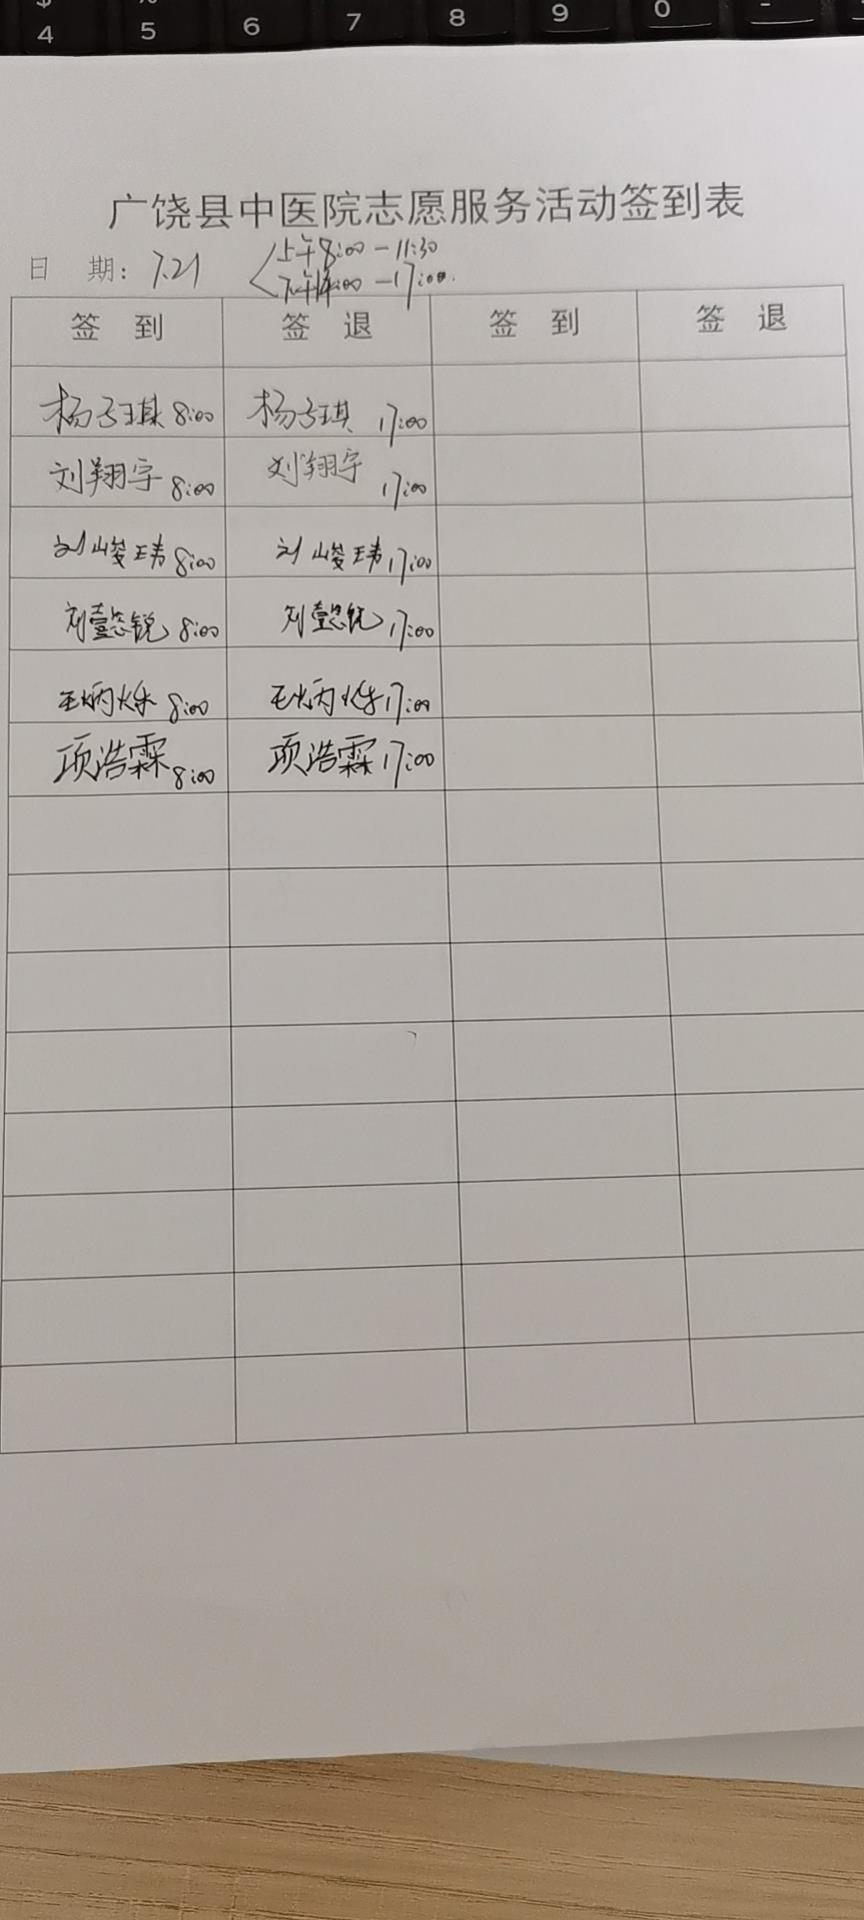 $ %
4 5 6 7 8 9 0 -
广饶县中医院志愿服务活动签到表
上午8:00-11:30
日 期: 7.21
下午14:00-17:00.
签 到 签 退 签 到 签 退
杨子琪 8:00 杨子琪 17:00
刘翔宇 8:00 刘翔宇 17:00
刘峻玮 8:00 刘峻玮 17:00
刘懿锐 8:00 刘懿锐 17:00
王炳烁 8:00 王炳烁 17:00
项浩霖 8:00 项浩霖 17:00